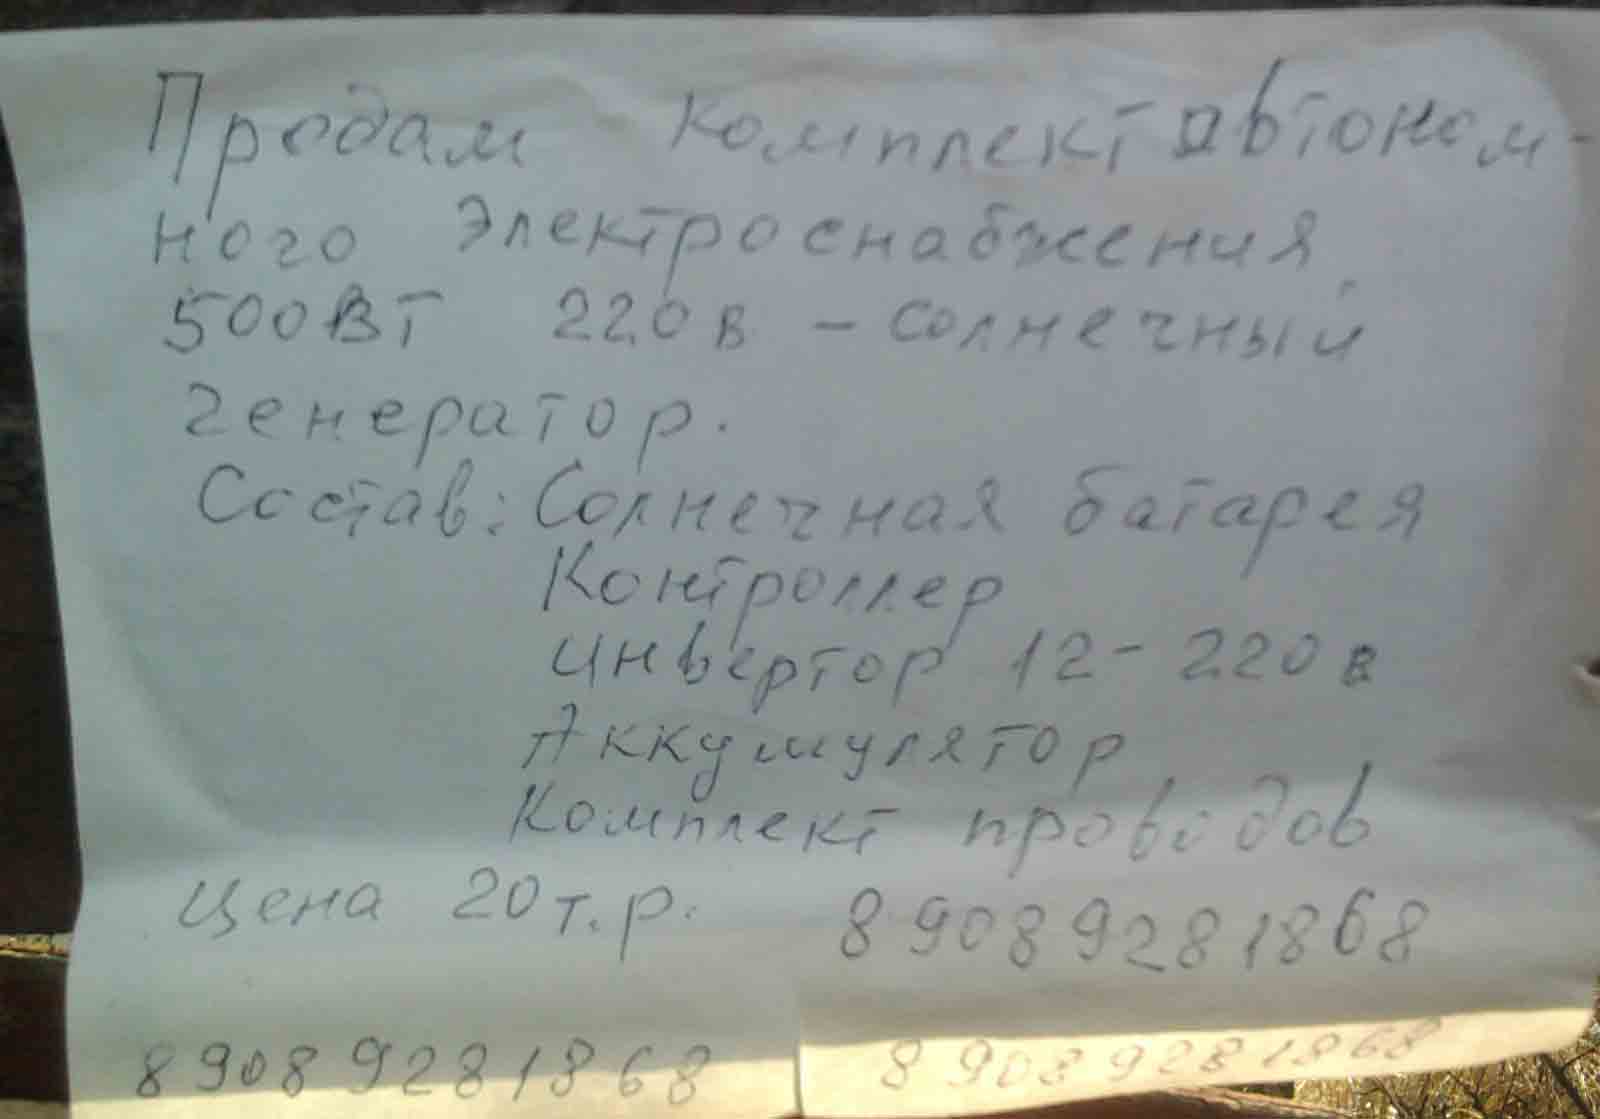 Продам комплект автоном-
ного электроснабжения
500Вт 220в - солнечный
генератор.
Состав: Солнечная батарея
Контроллер
Инвертор 12-220в
Аккумулятор
Комплект проводов
Цена 20т.р. 89089281868
89089281868 89089281868